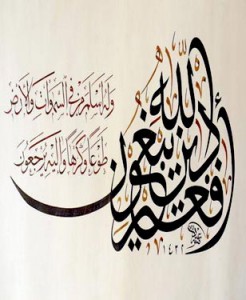 أفغير دين الله يبغون
وله أسلم من في السموات والأرض
طوعا وكرها وإليه يرجعون
١٤٢٢